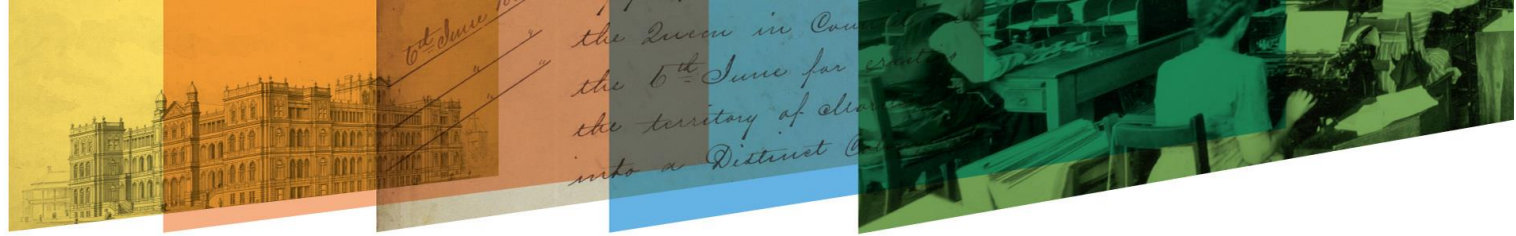 6th June
the Queen in Cou
the 6th June for erecting
the territory of
into a Distinct